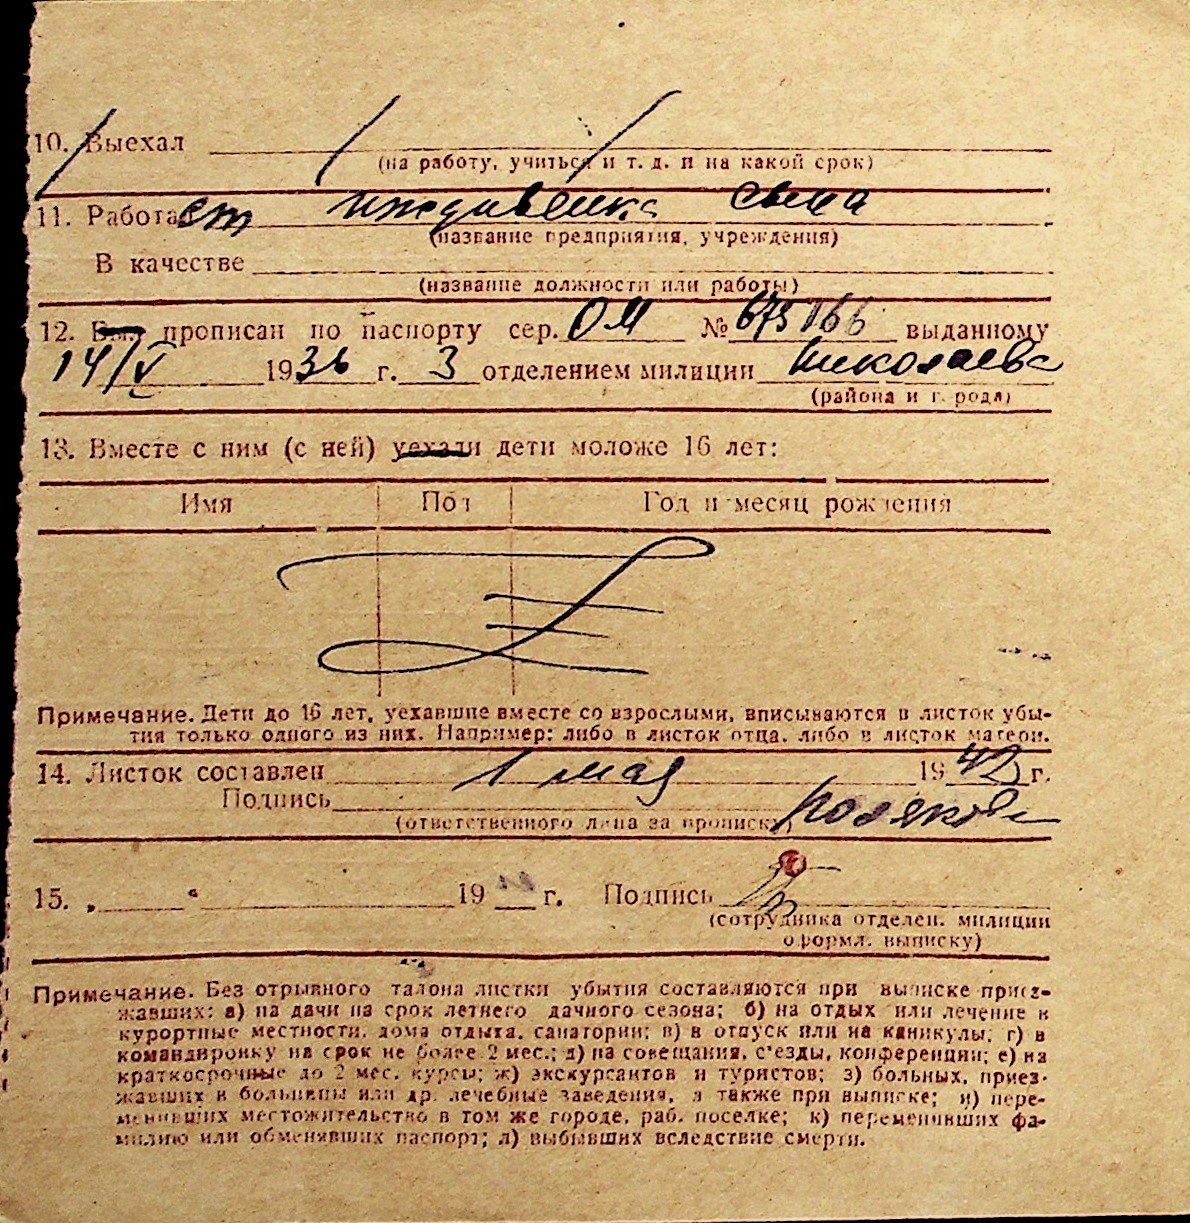 10. Выехал
(на работу, учиться и т. д. и на какой срок)
11. Работает иждивенка сына
(название предприятия, учреждения)
В качестве
(название должности или работы)
12. прописан по паспорту сер. ОМ № выданному
14/V 1936 г. 3 отделением милиции Николаева
(района и города)
13. Вместе с ним (с ней) уехали дети моложе 16 лет:
Имя Пол Год и месяц рождения
Примечание. Дети до 16 лет, уехавшие вместе со взрослыми, вписываются в листок убы-
тия только одного из них. Например: либо в листок отца, либо в листок матери.
14. Листок составлен 1 мая 1942 г.
Подпись Полякова
(ответственного лица за прописку)
15. „ " 19 г. Подпись
(сотрудника отделен. милиции
оформл. выписку)
Примечание. Без отрывного талона листки убытия составляются при выписке приез-
жавших: а) на дачи на срок летнего дачного сезона; б) на отдых или лечение в
курортные местности, дома отдыха, санатории; в) в отпуск или на каникулы; г) в
командировку на срок не более 2 мес.; д) на совещания, с'езды, конференции; е) на
краткосрочные до 2 мес. курсы; ж) экскурсантов и туристов; з) больных, приез-
жавших в больницы или др. лечебные заведения, а также при выписке; и) пере-
менивших местожительство в том же городе, раб. поселке; к) переменивших фа-
милию или обменявших паспорт; л) выбывших вследствие смерти.